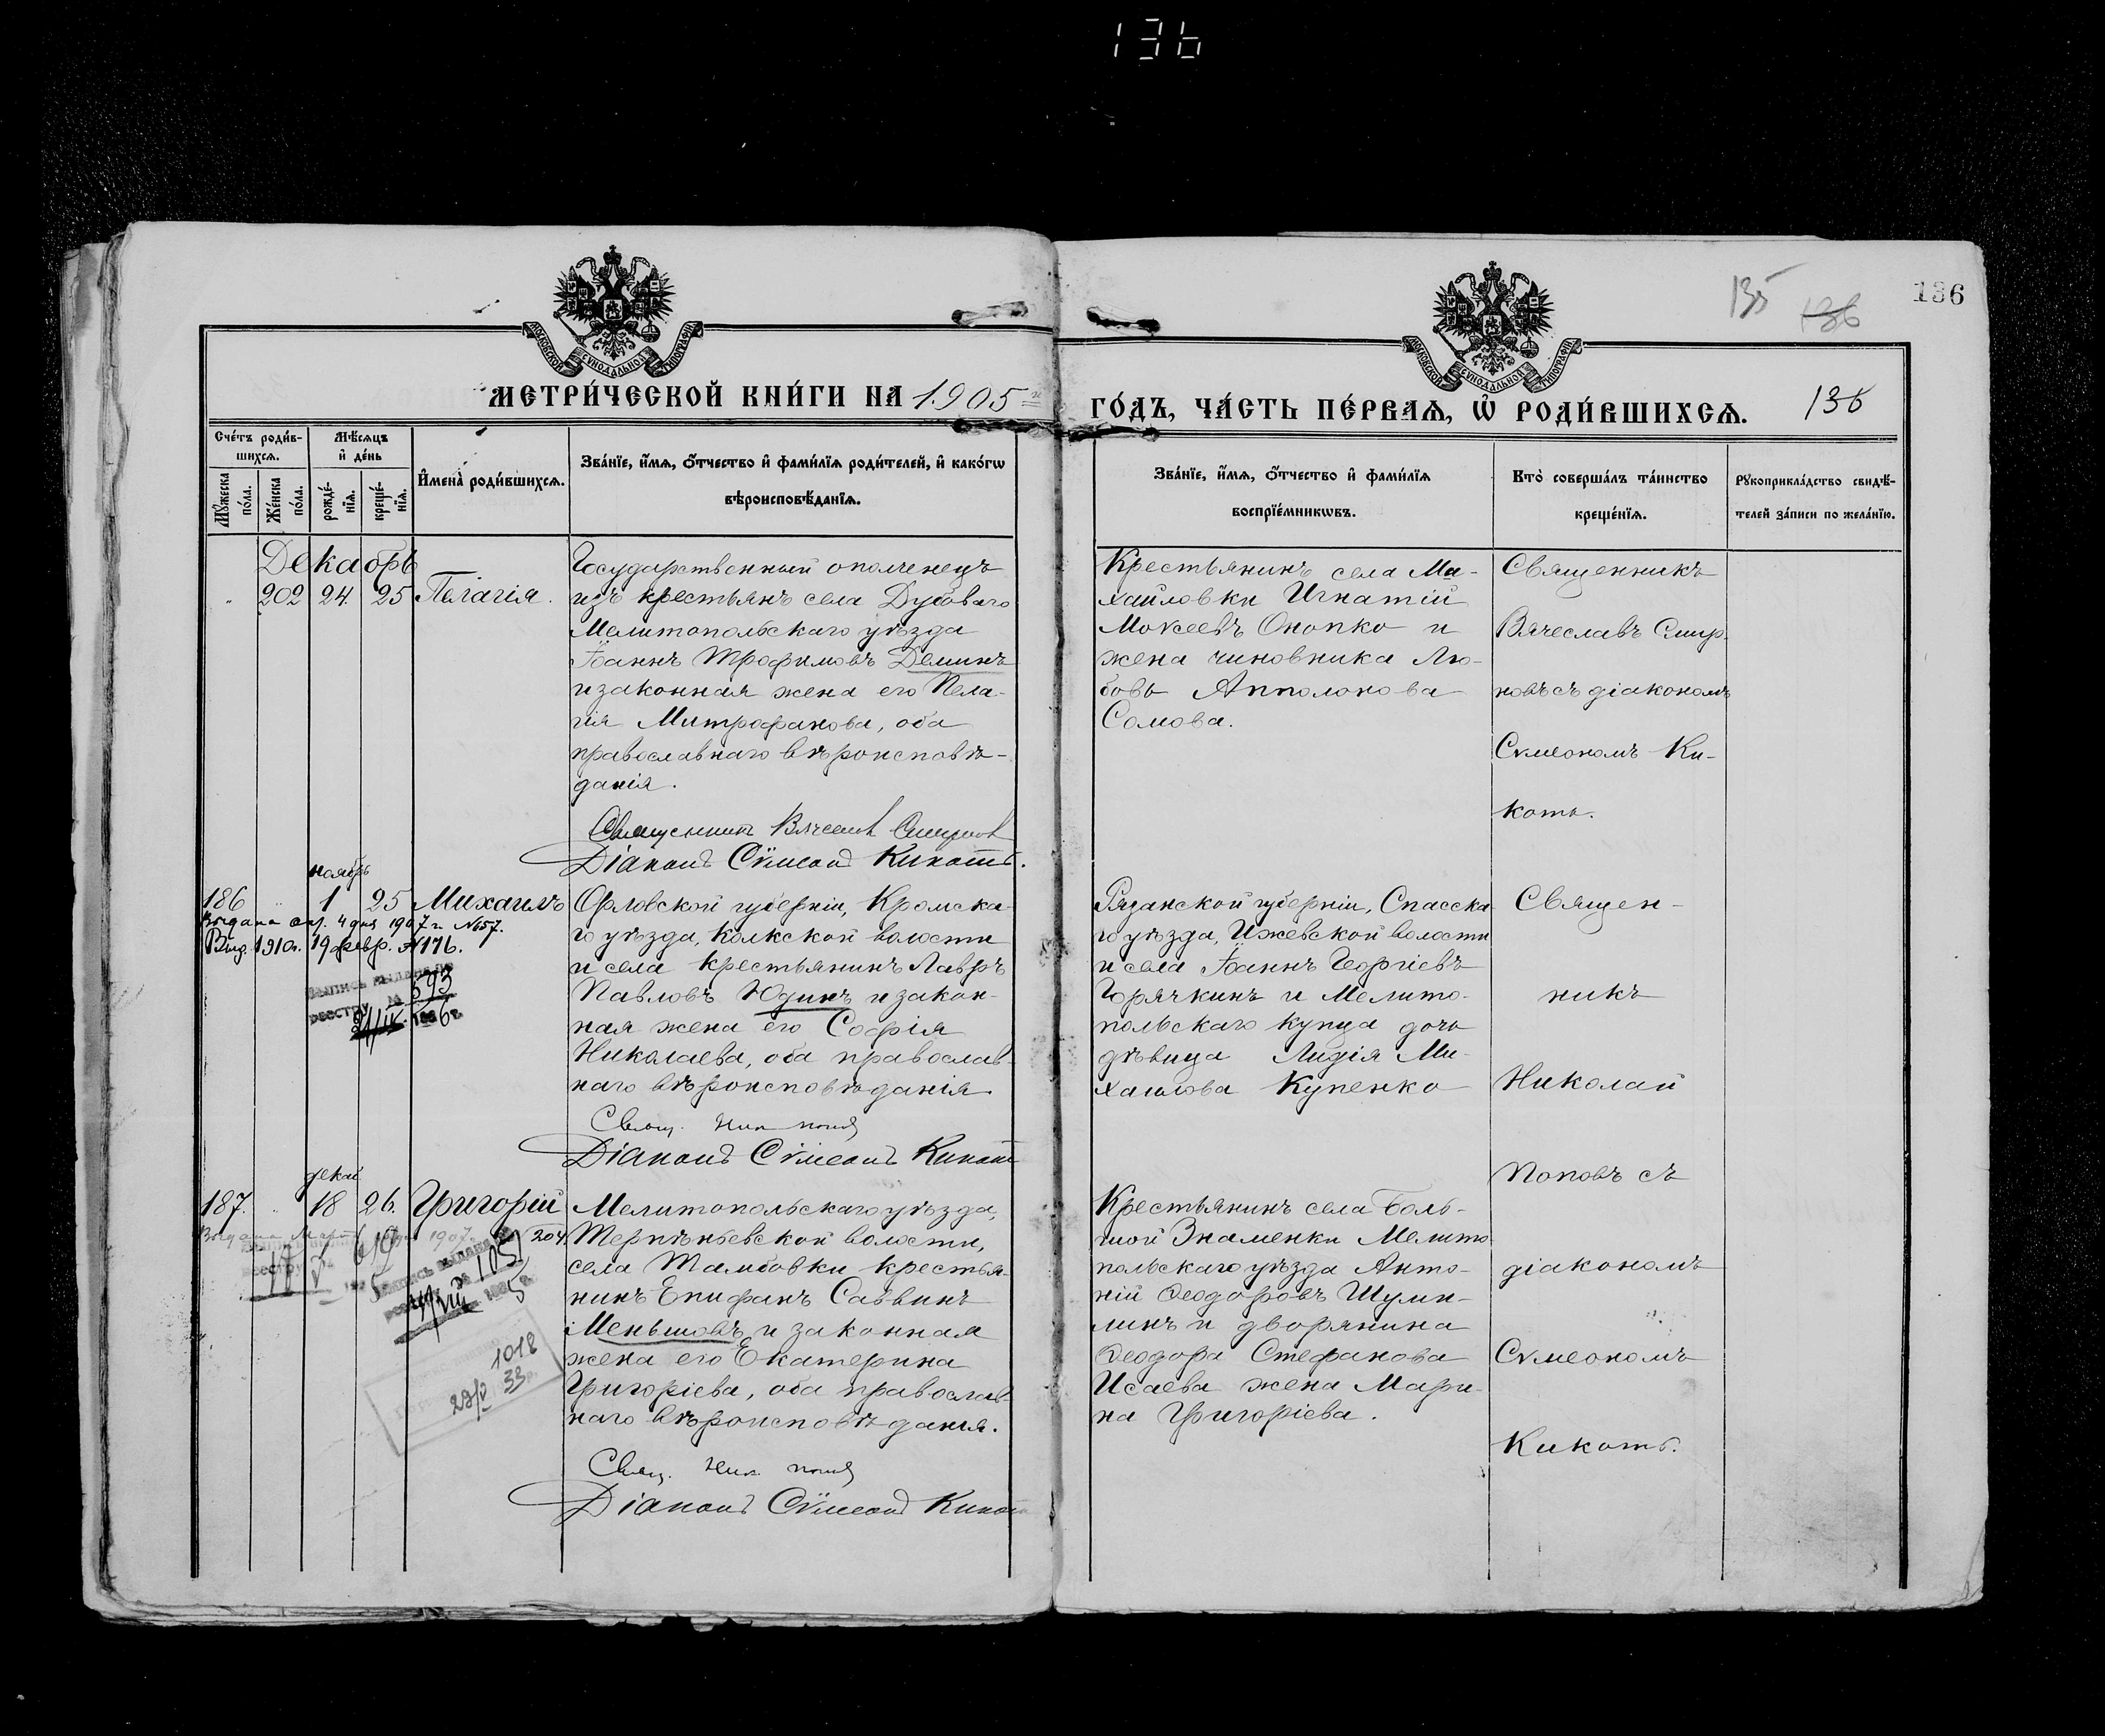 136
135 136 136
МОСКОВСКОЙ СѴНОДАЛЬНОЙ ТИПОГРАФІИ
МОСКОВСКОЙ СѴНОДАЛЬНОЙ ТИПОГРАФІИ
МЕТРИ́ЧЕСКОЙ КНИ́ГИ НА 1905й
ГО́ДЪ, ЧА́СТЬ ПЕ́РВАѦ, Ѡ҆ РОДИ́ВШИХСѦ. 136
Сче́тъ роди́вшихсѧ.
Мꙋ́жеска по́ла.
Же́нска по́ла.
Мѣ́сѧцъ и҆ де́нь
рожде́нїѧ.
креще́нїѧ.
И҆мена̀ роди́вшихсѧ.
Зва́нїе, и҆́мѧ, ѻ҆́тчество и҆ фами́лїѧ роди́телей, и҆ како́гѡ
вѣроисповѣ́данїѧ.
Зва́нїе, и҆́мѧ, ѻ҆́тчество и҆ фами́лїѧ
воспрїе́мникѡвъ.
Кто̀ соверша́лъ та́инство
креще́нїѧ.
Рꙋкоприкла́дство свидѣ́-
телей за́писи по жела́нїю.
Декабрь
202 24. 25 Пелагія.
Государственный ополченецъ
изъ крестьянъ села Дубоваго
Мелитопольскаго уѣзда
Іоаннъ Трофимовъ Деминъ
и законная жена его Пела-
гія Митрофанова, оба
православнаго вѣроисповѣ-
данія.
Священникъ Вячеславъ Смирновъ
Діаконъ Сѵмеонъ Кикоть.
Крестьянинъ села Ми-
хайловки Игнатій
Мокеевъ Онопко и
жена чиновника Лю-
бовь Апполонова
Сомова.
Священникъ
Вячеславъ Смир-
новъ съ діакономъ
Сѵмеономъ Ки-
коть.
ноябрь
186 1 25 Михаилъ
Выдана 4 дня 1907 г. №57.
Выд. 1910г. 19 февр. №176.
Выпись выдана по
реестру № 593
Орловской губерніи, Кромска-
го уѣзда, Колкской волости
и села крестьянинъ Лавръ
Павловъ Юдинъ и закон-
ная жена его Софія
Николаева, оба православ-
наго вѣроисповѣданія.
Свящ. Ник. Поповъ
Діаконъ Сѵмеонъ Кикоть
Рязанской губерніи, Спасска-
го уѣзда, Ижевской волости
и села Іоаннъ Георгіевъ
Горячкинъ и Мелито-
польскаго купца дочь
дѣвица Лидія Ми-
хайлова Купенко
Священ-
никъ
Николай
Поповъ съ
діакономъ
Сѵмеономъ
Кикоть.
декаб
187. 18 26. Григорій
Выдана Март 1907 204
619
105
1018
29/V 33
Мелитопольскаго уѣзда,
Терпѣньевской волости,
села Тамбовки крестья-
нинъ Епифанъ Саввинъ
Меньшовъ и законная
жена его Екатерина
Григоріева, оба православ-
наго вѣроисповѣданія.
Свящ. Ник. Поповъ
Діаконъ Сѵмеонъ Кикоть
Крестьянинъ села Боль-
шой Знаменки Мелито-
польскаго уѣзда Анто-
ній Ѳеодоровъ Шуми-
линъ и дворянина
Ѳеодора Стефанова
Исаева жена Мари-
на Григоріева.